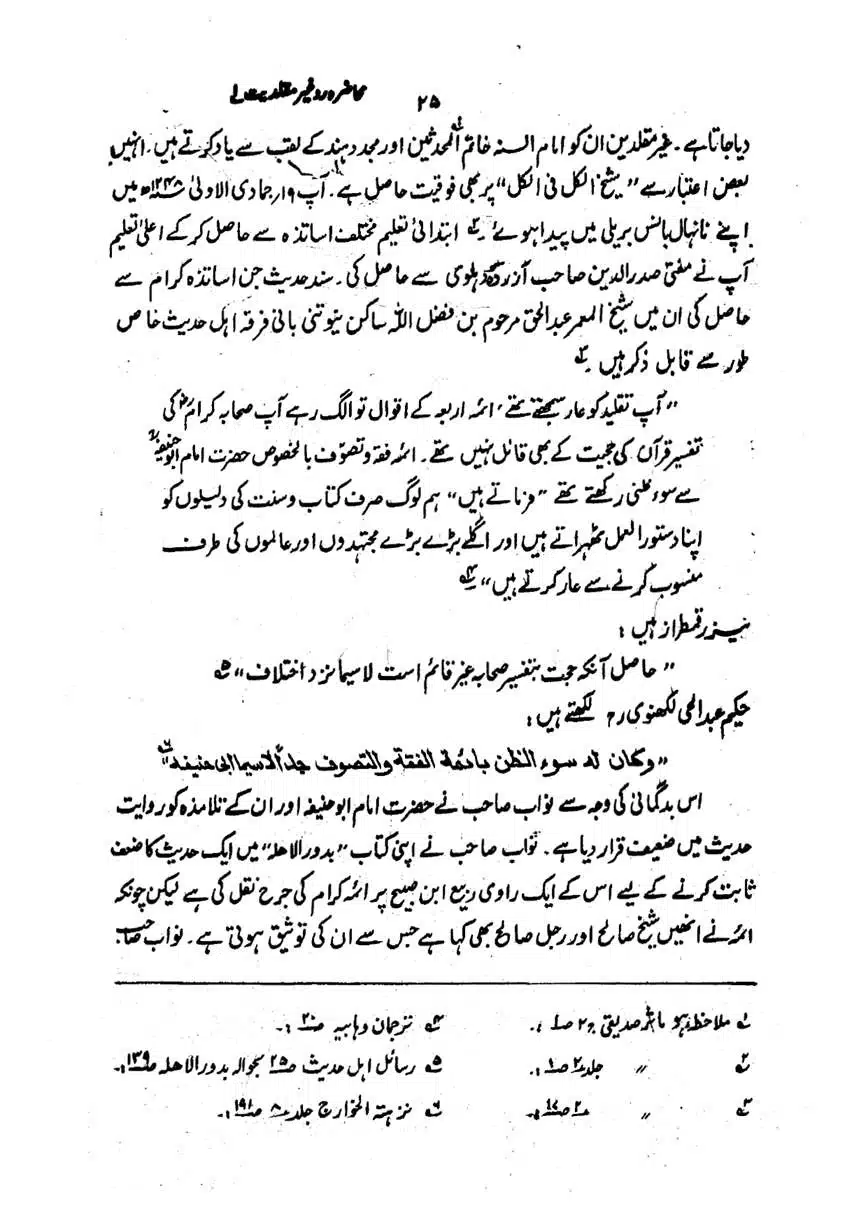 ۲۵ محاضرہ رد غیر مقلدیت ۱
دیا جاتا ہے۔ غیر مقلدین ان کو امام السنہ خاتم المحدثین اور مجدد ہند کے لقب سے یاد کرتے ہیں۔ انہیں
بعض اعتبار سے ”شیخ الکل فی الکل“ پر بھی فوقیت حاصل ہے۔ آپ ۱۹ جمادی الاولیٰ ۱۲۴۸ھ میں
اپنے نانہال بانس بریلی میں پیدا ہوئے ۲؎ ابتدائی تعلیم مختلف اساتذہ سے حاصل کر کے اعلیٰ تعلیم
آپ نے مفتی صدر الدین صاحب آزردہ دہلوی سے حاصل کی۔ سند حدیث جن اساتذہ کرام سے
حاصل کی ان میں شیخ المعمر عبدالحق مرحوم بن فضل اللہ ساکن نیوتنی بانی فرقہ اہل حدیث خاص
طور سے قابل ذکر ہیں ۳؎
”آپ تقلید کو عار سمجھتے تھے، ائمہ اربعہ کے اقوال تو الگ رہے آپ صحابہ کرامؓ کی
تفسیر قرآن کی حجیت کے بھی قائل نہیں تھے۔ ائمہ فقہ و تصوف بالخصوص حضرت امام ابوحنیفہؒ
سے سوء ظنی رکھتے تھے ”فرماتے ہیں“ ہم لوگ صرف کتاب و سنت کی دلیلوں کو
اپنا دستور العمل ٹھہراتے ہیں اور اگلے بڑے بڑے مجتہدوں اور عالموں کی طرف
منسوب کرنے سے عار کرتے ہیں“ ۴؎
نیز رقمطراز ہیں :
”حاصل آنکہ حجت بتفسیر صحابہ غیر قائم است لاسیما نزد اختلاف“ ۵؎
حکیم عبدالحی لکھنوی رح لکھتے ہیں :
”وکان لہ سوء الظن بائمۃ الفقۃ والتصوف جداً لاسیما ابی حنیفہ“ ۶؎
اس بدگمانی کی وجہ سے نواب صاحب نے حضرت امام ابوحنیفہ اور ان کے تلامذہ کو روایت
حدیث میں ضعیف قرار دیا ہے۔ نواب صاحب نے اپنی کتاب ”بدور الاھلہ“ میں ایک حدیث کا ضعف
ثابت کرنے کے لیے اس کے ایک راوی ربیع ابن صبیح پر ائمہ کرام کی جرح نقل کی ہے لیکن چونکہ
ائمہ نے انھیں شیخ صالح اور رجل صالح بھی کہا ہے جس سے ان کی توثیق ہوتی ہے۔ نواب صاحب
۱؎ ملاحظہ ہو مآثر صدیقی ج۲ ص۱ ۔
۲؎ ״ جلد ۲ ص۱ ۔
۳؎ ״ ۲ ص
۴؎ ترجمان وہابیہ ص۲۰ ۔
۵؎ رسائل اہل حدیث ص۲۵ بحوالہ بدور الاھلہ ص۱۳۹ ۔
۶؎ نزہتہ الخوارج جلد ۸ ص۱۹۱ ۔